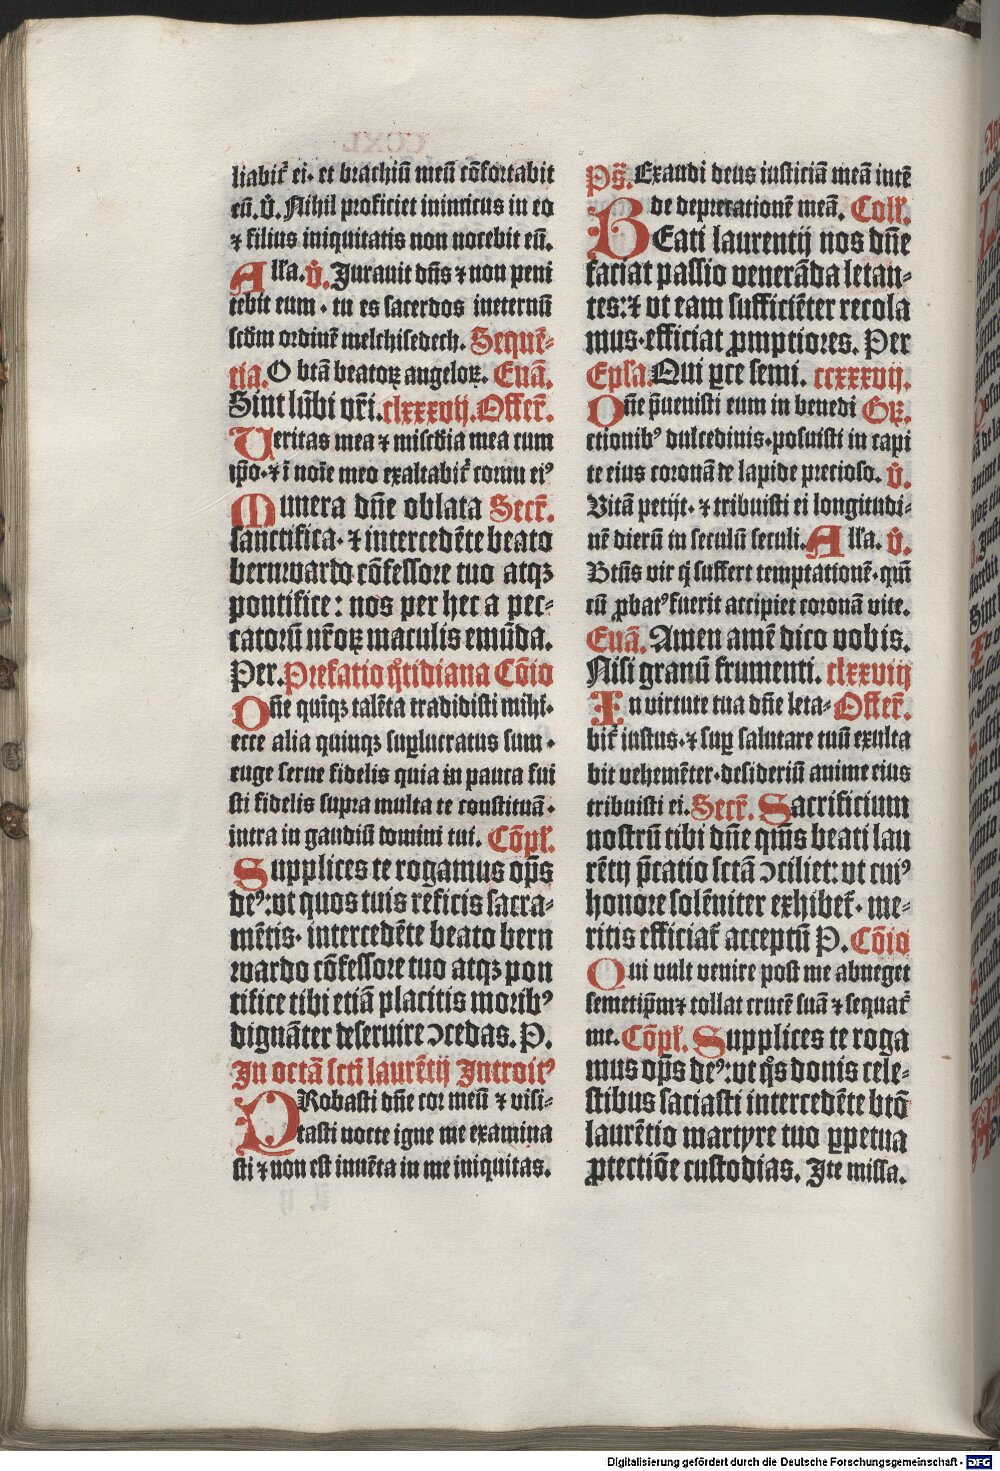 liabit᷑ ei· et brachiū meū cōfortabit
eū. v̊. Nihil proficiet inimicus in eo
⁊ filius iniquitatis non nocebit eū.
Alľa. v̊. Jurauit dn̄s ⁊ non peni
tebit eum· tu es sacerdos ineternū
scd̄m ordinē melchisedech. Sequē⸗
tia. O btā beatoꝝ angeloꝝ. Euā.
Sint lūbi vr̄i. clxxxvij. Offer̄.
Ueritas mea ⁊ misc̄dia mea cum
ip̄o·⁊ ī noīe meo exaltabit᷑ cornu ei⁹
Munera dn̄e oblata Secr̄.
sanctifica· ⁊ intercedēte beato
bernwardo cōfessore tuo atqꝫ
pontifice: nos per hec a pec⸗
catorū nr̄oꝝ maculis emūda.
Per. Prefatio q̊tidiana Cōio
Dn̄e quīqꝫ talēta tradidisti mihi·
ecce alia quinqꝫ suꝑlucratus sum·
euge serue fidelis quia in pauca fui
sti fidelis supra multa te constituā·
intra in gaudiū domini tui. Cōpl̄.
Supplices te rogamus op̄s
de⁹: vt quos tuis reficis sacra⸗
mētis· intercedēte beato bern
wardo cōfessore tuo atqꝫ pon
tifice tibi etiā placitis morib⁹
dignāter deseruire ↄcedas. P.
In octā scti laurētij Introit⁹
PRobasti dn̄e cor meū ⁊ visi⸗
tasti nocte igne me examina
sti ⁊ non est inuēta in me iniquitas.
Ps̄. Exaudi deus iusticiā meā intē
de deprecationē meā. Coll̄.
BEati laurentij nos dn̄e
faciat passio venerāda letan⸗
tes: ⁊ vt eam sufficiēter recola
mus· efficiat ꝓmptiores. Per
Epl̄a. Qui ꝑce semi. ccxxxvij.
Dn̄e p̄uenisti eum in benedi Gꝝ.
ctionib⁹ dulcedinis· posuisti in capi
te eius coronā de lapide precioso. v̊.
Uitā petijt· ⁊ tribuisti ei longitudi⸗
nē dierū in seculū seculi. Alľa. v̊.
Btūs vir q̇ suffert temptationē· qm̄
cū ꝓbat⁹ fuerit accipiet coronā vite.
Euā. Amen amē dico vobis.
Nisi granū frumenti. clxxviij
In virtute tua dn̄e leta⸗ Offer̄.
bit᷑ iustus· ⁊ suꝑ salutare tuū exulta
bit vehemēter· desideriū anime eius
tribuisti ei. Secr̄. Sacrificium
nostrū tibi dn̄e qm̄s beati lau
rētij p̄catio sctā ↄciliet: vt cui⁹
honore solēniter exhibet᷑· me⸗
ritis efficiat᷑ acceptū P. Cōio
Qui vult venire post me abneget
semetip̄m ⁊ tollat crucē suā ⁊ sequat᷑
me. Cōpl̄. Supplices te roga
mus op̄s de⁹: vt q̊s donis cele⸗
stibus saciasti intercedēte btō
laurētio martyre tuo ꝑpetua
ꝓtectiōe custodias. Ite missa.
Digitalisierung gefördert durch die Deutsche Forschungsgemeinschaft - DFG